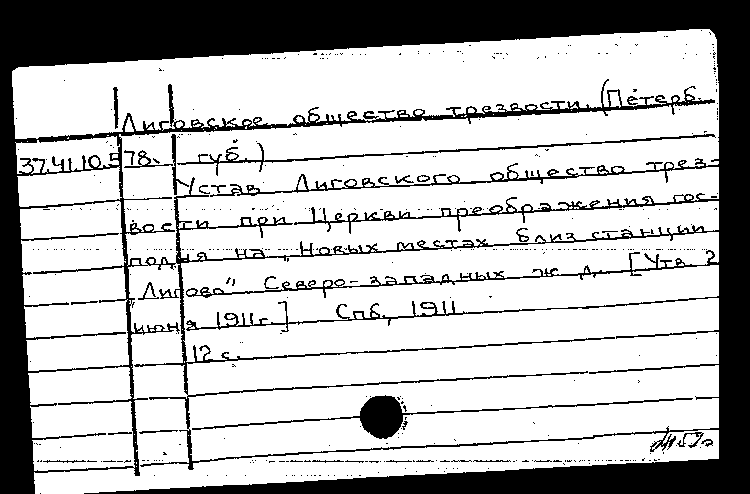 Лиговское общество трезвости. (Петерб.
37.41.10.578. губ.)
Устав Лиговского общество трез-
вости при Церкви преображения гос-
подня на „Новых местах близ станции
„Лигово" Северо-западных ж д. [Утв. 2
июня 1911г.] Спб., 1911
12 с.